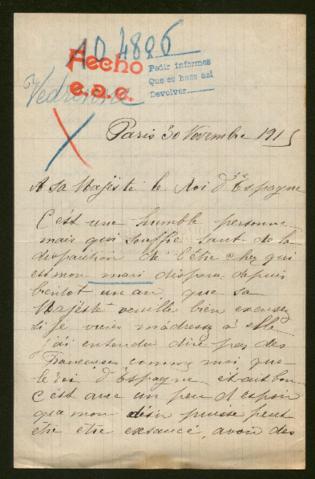 10 4886
Hecho
e.a.c.
Pedir informes
Que se hace así
Devolver
Vedrenne
Paris 30 Novembre 1915
A sa Majesté le Roi d'Espagne
C'est une humble personne
mais qui souffre tant de la
disparition de l'être cher qui
est mon mari disparu depuis
bientot un an, que sa
Majesté veuille bien excuser
si je viens m'adresser à elle
j'ai entendu dire par des
Françaises comme moi que
le roi d'Espagne était bon
C'est avec un peu d'espoir
que mon désir puisse peut
être être exaucé, avoir des